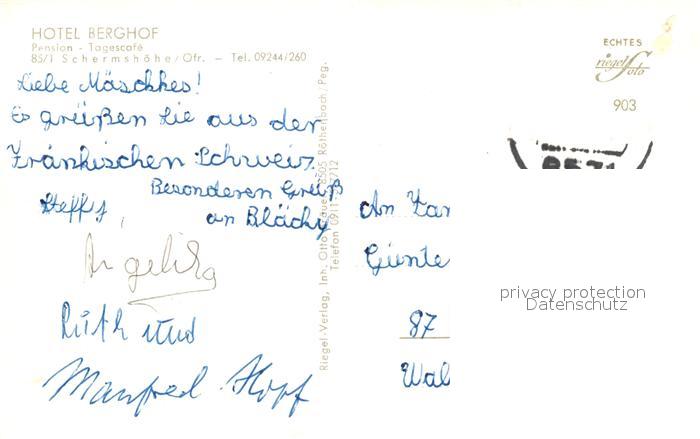 HOTEL BERGHOF
Pension - Tagescafé
85/1 Schermshöhe/Ofr. — Tel. 09244/260
Liebe Mäschkes!
Es grüßen Sie aus der
Fränkischen Schweiz
Besonderen Gruß
an Bläcky
Steffi,
Angelika
Ruth und
Manfred Hopf
Riegel-Verlag, Inh. Otto 8505 Röthenbach/Peg.
Telefon
ECHTES
riegel
foto
903
An Fam
Günte
87
Wal
privacy protection
Datenschutz